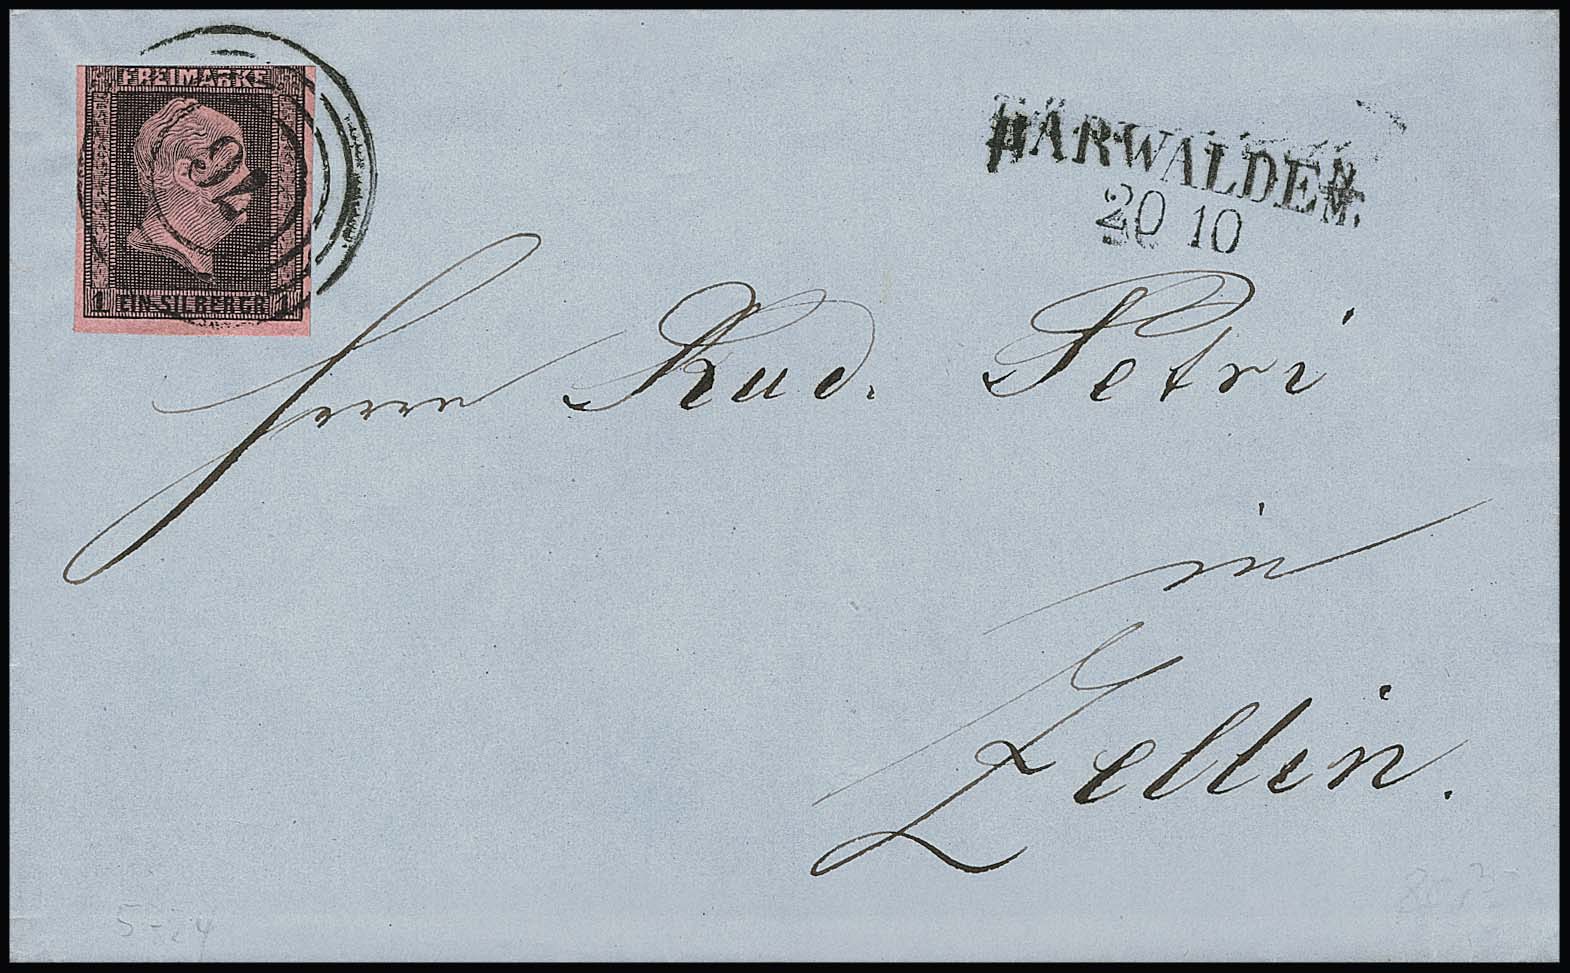 FREIMARKE
92
1 EIN SILBERGR. 1
BÄRWALDE N/M.
20 10
Herrn Rud. Petri
in
Zellin.
5-24